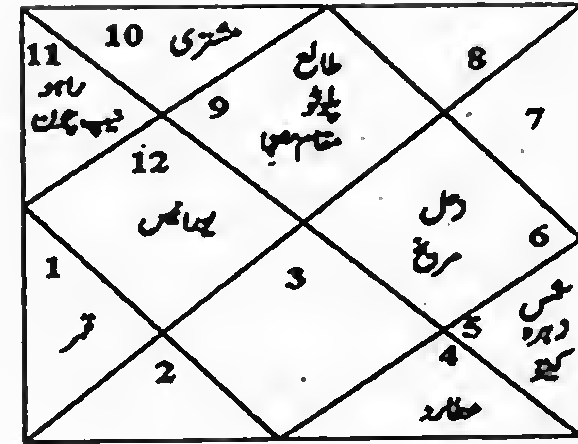 10 مشتری
11
راہو
9
طالع
پلوٹو
8
7
12
یورانس
زحل
مریخ
6
1
قمر
3
شمس
زہرہ
کیتو
5
4
عطارد
2